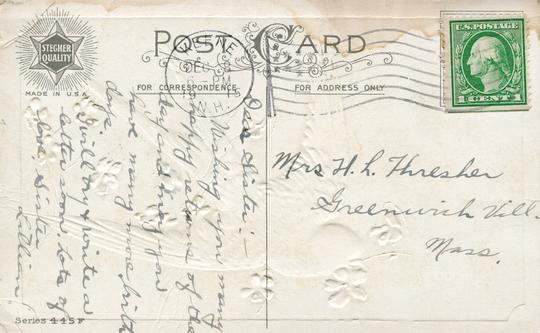 STECHER
QUALITY
MADE IN U.S.A.
POST CARD
FOR CORRESPONDENCE
FOR ADDRESS ONLY
KEENE
DEC
PM
N.H.
U.S. POSTAGE
1 CENT 1
Dear Sister:-
Wishing you many
happy returns of the
day and may you
have many more birth
days.
I will try & write a
letter soon. Lots of
love Sister
Lillian
Mrs H. h. Thresher
Greenwich Vill.
Mass.
Series 445 F